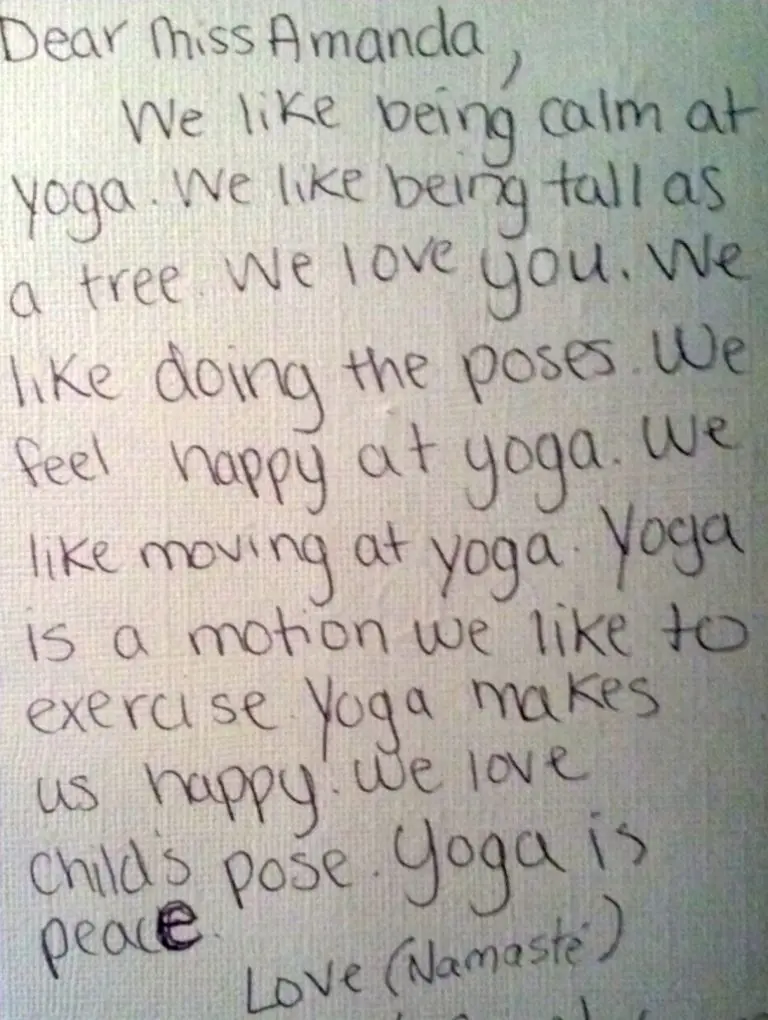 Dear Miss Amanda,
We like being calm at
yoga. We like being tall as
a tree. We love you. We
like doing the poses. We
feel happy at yoga. We
like moving at yoga. Yoga
is a motion we like to
exercise. Yoga makes
us happy! We love
child's pose. Yoga is
peace.
Love (Namasté)